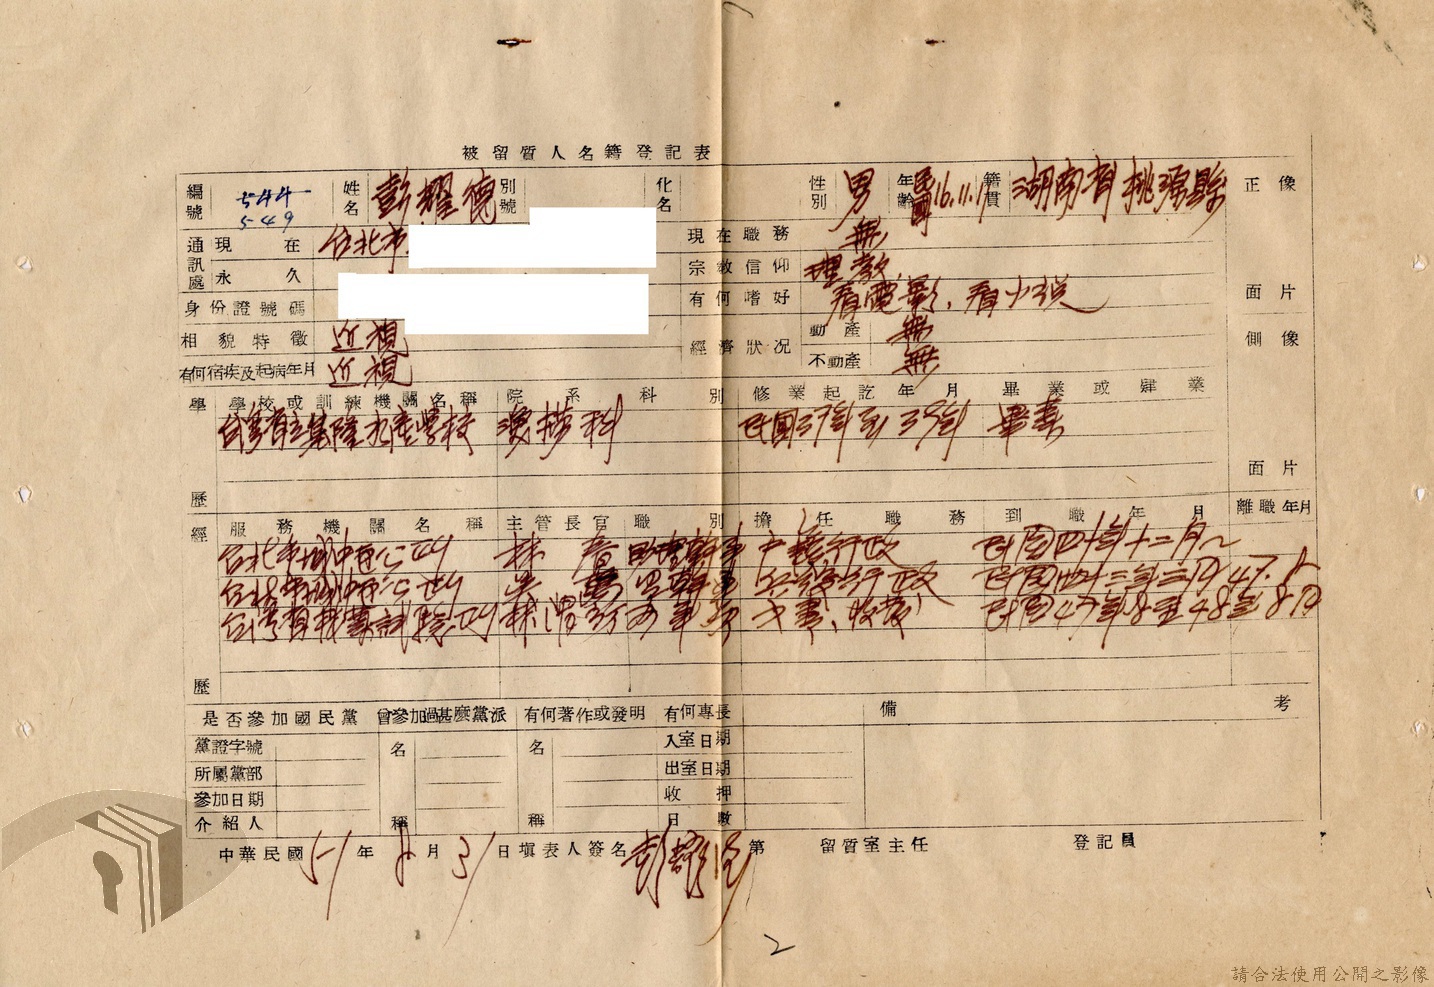 被留質人名籍登記表
編號 544 549 姓名 彭耀德 別號 化名 性別 男 年齡 16.11.17 籍貫 湖南省桃源縣 正像
通訊處 現在 台北市 現在職務 無
永久 宗教信仰 理教
身份證號碼 有何嗜好 看電影、看小說 面片
相貌特徵 近視 經濟狀況 動產 無 側像
有何宿疾及起病年月 近視 不動產 無
學歷 學校或訓練機關名稱 院系科別 修業起訖年月 畢業或肄業
台灣省立基隆水產學校 漁撈科 民國37年至39年 畢業
面片
經歷 服務機關名稱 主管長官 職別 擔任職務 到職年月 離職年月
台北市城中區公所 林 助理幹事 戶籍行政 民國四十年十二月
台北市城中區公所 吳 里幹事 行政 民國四十三年三月 47.8
台灣省林業試驗所 林渭訪 文書、收發 民國47年8至48年8月
是否參加國民黨 曾參加過甚麼黨派 有何著作或發明 有何專長 備考
黨證字號 名稱 名稱 入室日期
所屬黨部 出室日期
參加日期 收押日數
介紹人
中華民國51年8月31日填表人簽名 彭耀德 第 留質室主任 登記員
2
請合法使用公開之影像